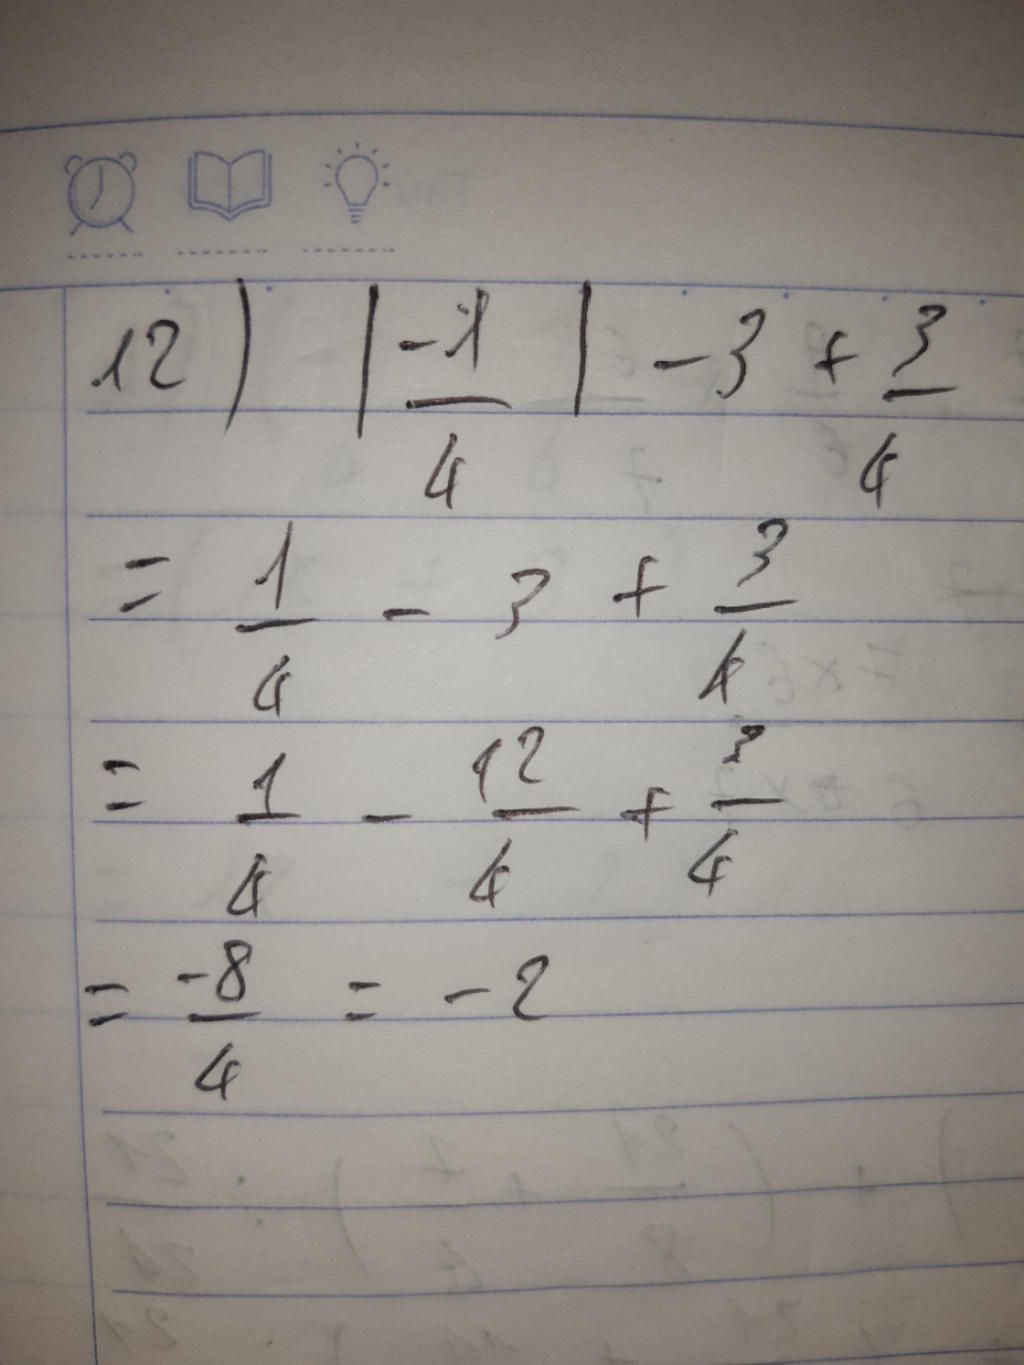 12) |-1/4| - 3 + 3/4
= 1/4 - 3 + 3/4
= 1/4 - 12/4 + 3/4
= -8/4 = -2